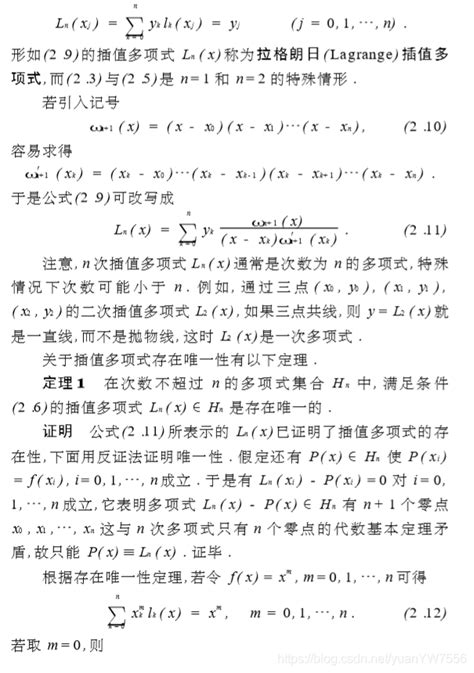 n
Lₙ(xⱼ) = ∑ yₖ lₖ(xⱼ) = yⱼ (j = 0, 1, ⋯, n) .
k=0
形如(2 .9)的插值多项式 Lₙ(x)称为拉格朗日(Lagrange)插值多
项式,而(2 .3)与(2 .5)是 n=1 和 n=2 的特殊情形 .
若引入记号
ωₙ₊₁(x) = (x - x₀)(x - x₁)⋯(x - xₙ), (2 .10)
容易求得
ω′ₙ₊₁(xₖ) = (xₖ - x₀)⋯(xₖ - xₖ₋₁)(xₖ - xₖ₊₁)⋯(xₖ - xₙ) .
于是公式(2 .9)可改写成
n
Lₙ(x) = ∑ yₖ ωₙ₊₁(x) / (x - xₖ)ω′ₙ₊₁(xₖ) . (2 .11)
k=0
注意, n次插值多项式 Lₙ(x)通常是次数为 n 的多项式,特殊
情况下次数可能小于 n . 例如, 通过三点(x₀, y₀), (x₁, y₁),
(x₂, y₂)的二次插值多项式 L₂(x),如果三点共线,则 y = L₂(x)就
是一直线,而不是抛物线,这时 L₂(x)是一次多项式 .
关于插值多项式存在唯一性有以下定理 .
定理 1 在次数不超过 n 的多项式集合 Hₙ 中, 满足条件
(2 .6)的插值多项式 Lₙ(x)∈ Hₙ 是存在唯一的 .
证明 公式(2 .11)所表示的 Lₙ(x)已证明了插值多项式的存
在性,下面用反证法证明唯一性 . 假定还有 P(x)∈ Hₙ 使 P(xᵢ)
= f(xᵢ), i = 0, 1, ⋯, n成立 . 于是有 Lₙ(xᵢ) - P(xᵢ) = 0 对 i = 0,
1, ⋯, n成立,它表明多项式 Lₙ(x) - P(x)∈ Hₙ 有 n + 1 个零点
x₀ , x₁ , ⋯, xₙ 这与 n 次多项式只有 n 个零点的代数基本定理矛
盾,故只能 P(x)≡ Lₙ(x) . 证毕 .
根据存在唯一性定理,若令 f(x) = xᵐ, m = 0, 1, ⋯, n 可得
n
∑ xₖᵐ lₖ(x) = xᵐ, m = 0, 1, ⋯, n . (2 .12)
k=0
若取 m = 0,则
https://blog.csdn.net/yuanYW7556